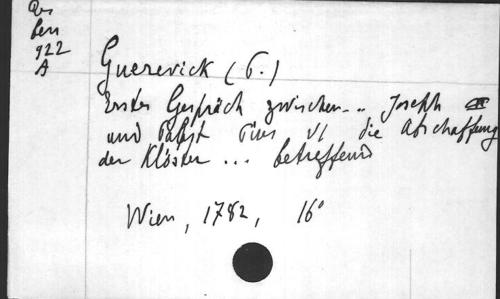 922
A
Guerevick (G.)
Erstes Gespräch zwischen... Joseph
und Pabst Pius VI die Abschaffung
der Klöster ... betreffend
Wien, 1782, 16°